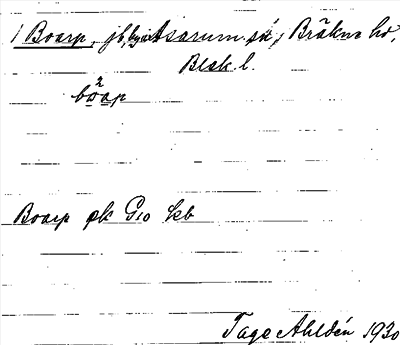 1 Boarp, jb, by i Asarum sn, Bräkne hd,
Blek. l.
2
boap
Boarp ek G10 kb
Tage Ahldén 1930